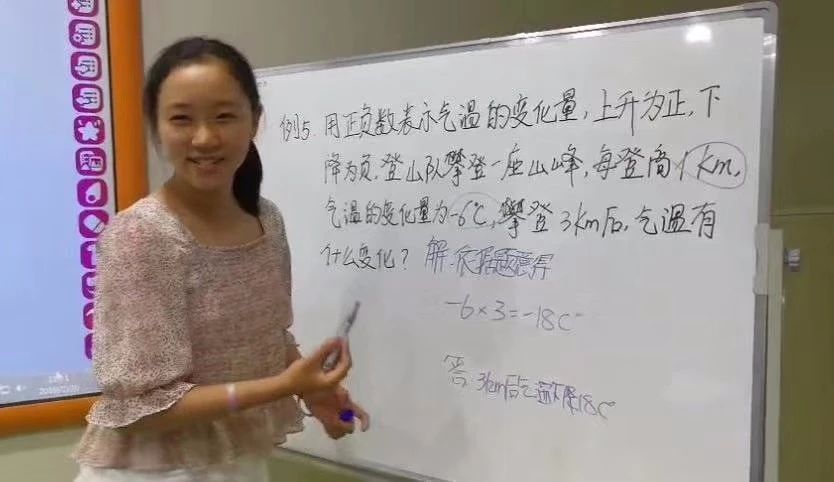 例5. 用正负数表示气温的变化量,上升为正,下
降为负.登山队攀登一座山峰,每登高1km,
气温的变化量为-6℃,攀登3km后,气温有
什么变化? 解:依据题意得
-6×3=-18C
答 3km后气温下降18C